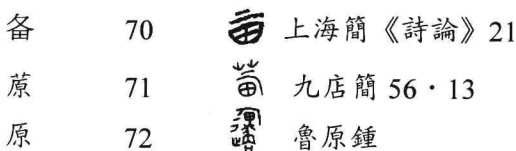 备 70 上海簡《詩論》21
蒝 71 九店簡 56·13
原 72 魯原鍾